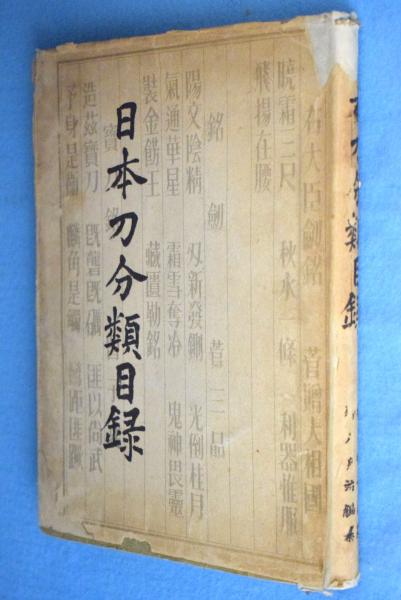 日本刀分類目録
右大臣劍銘 菅贈大相國
曉霜三尺 秋水一條 利器惟服
飛揚在腰
銘劍 菅三品
陽文陰精 刄新發鉶 光倒桂月
氣通華星 霜雪奪冷 鬼神畏靈
裝金餝玉 藏匱勒銘
寶
造茲寶刀 既礱既礪 匪以尚武
予身是衛 麟角是觸
本刀分類目録